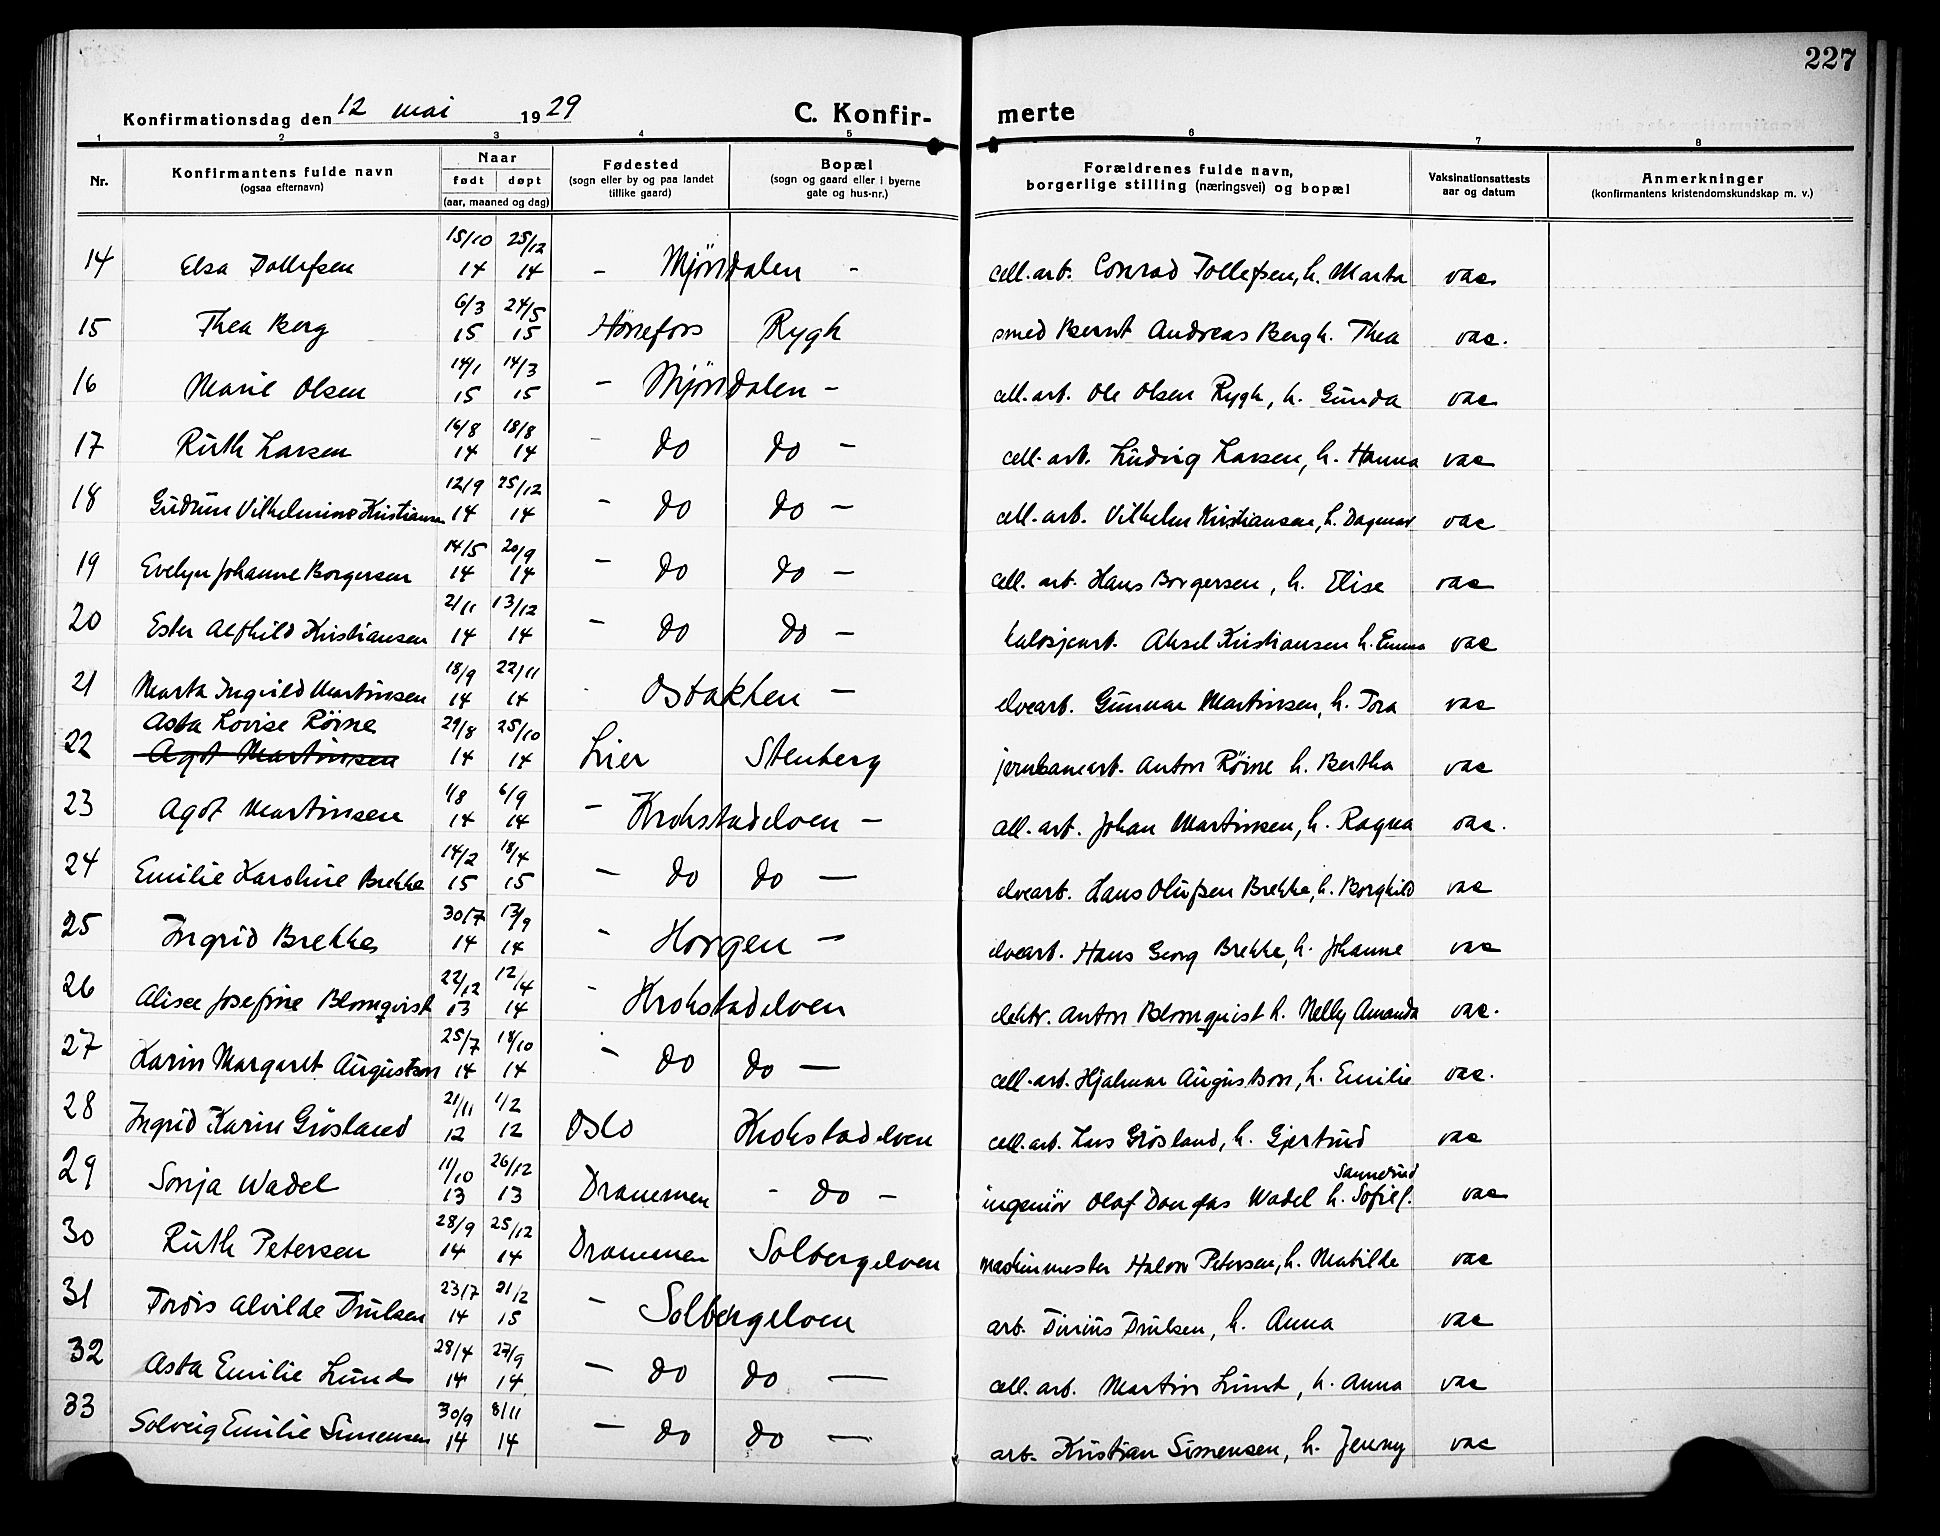 227
Konfirmationsdag den 12 mai 1929 C. Konfir- merte
1 2 3 4 5 6 7 8
Nr. Konfirmantens fulde navn (ogsaa efternavn) Naar født døpt (aar, maaned og dag) Fødested (sogn eller by og paa landet tillike gaard) Bopæl (sogn og gaard eller i byerne gate og hus-nr.) Forældrenes fulde navn, borgerlige stilling (næringsvei) og bopæl Vaksinationsattests aar og datum Anmerkninger (konfirmantens kristendomskundskap m. v.)
14 Elsa Tollefsen 15/10 14 25/12 14 - Mjöndalen - cell. arb. Conrad Tollefsen, h. Marta vac
15 Thea Berg 6/3 15 24/5 15 Hönefoss Rygh smed Bernt Andreas Berg h. Thea vac.
16 Marie Olsen 14/1 15 14/3 15 - Mjöndalen - cell. arb. Ole Olsen Rygh, h. Gunda vac
17 Ruth Larsen 16/8 14 18/8 14 - do do - cell. arb. Ludvig Larsen, h. Hanna vac
18 Gudrun Vilhelmine Kristiansen 12/9 14 25/12 14 - do do - cell. arb. Vilhelm Kristiansen, h. Dagmar vac
19 Evelyn Johanne Borgersen 14/5 14 20/9 14 - do do - cell. arb. Hans Borgersen, h. Elise vac
20 Ester Alfhild Kristiansen 2/11 14 13/12 14 - do do - arb. Aksel Kristiansen h. Emma vac
21 Marta Ingvild Martinsen 18/9 14 22/11 14 Ostakken - elvearb. Gunnar Martinsen, h. Tora vac
Asta Lovise Röine
22 Agot Martinsen 29/8 14 25/10 14 Lier Stenberg jernbanearb. Anton Röine h. Bertha vac
23 Agot Martinsen 1/8 14 6/9 14 - Krokstadelven - cell. arb. Johan Martinsen, h. Ragna vac.
24 Emilie Karoline Brekke 14/2 15 18/4 15 - do do - elvearb. Hans Olufsen Brekke, h. Borghild vac
25 Ingrid Brekke 30/7 14 13/9 14 - Horgen - elvearb. Hans Georg Brekke, h. Johanne vac
26 Alise Josefine Blomqvist 22/12 13 12/4 14 - Krokstadelven elektr. Anton Blomqvist h. Nelly Amanda vac.
27 Karin Margaret Augustson 25/7 14 18/10 14 - do do - cell. arb. Hjalmar Augustson, h. Emilie vac.
28 Ingrid Karin Grösland 21/11 12 1/2 12 Oslo Krokstadelven cell. arb. Lars Grösland, h. Gjertrud vac
Sannerud
29 Sonja Wadel 11/10 13 26/12 13 Drammen - do - ingeniör Olaf Wadel h. Sofie f. vac
30 Ruth Petersen 28/9 14 25/12 14 Drammen Solbergelven maskinmester Halvor Petersen, h. Matilde vac
31 Tordis Alvilde Trulsen 23/7 14 21/2 15 - Solbergelven arb. Tinius Trulsen, h. Anna vac
32 Asta Emilie Lund 28/4 14 27/9 14 - do do - cell. arb. Martin Lund, h. Anna vac
33 Solveig Emilie Simensen 30/9 14 8/11 14 - do do - arb. Kristian Simensen, h. Jenny vac